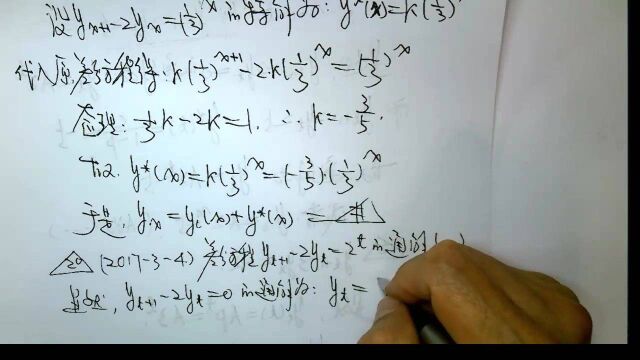 设 y_{x+1}-2y_x=(1/3)^x 的特解为: y*(x)=k(1/3)^x
代入原差分方程得: k(1/3)^{x+1}-2·k(1/3)^x=(1/3)^x
整理: 1/3k-2k=1. ∴ k=-3/5.
故. y*(x)=k(1/3)^x=(-3/5)·(1/3)^x
于是, y_x=y_c(x)+y*(x)=
20 (2017-3-4) 差分方程 y_{t+1}-2y_t=2^t 的通解( )
y_{t+1}-2y_t=0 的通解为: y_t=